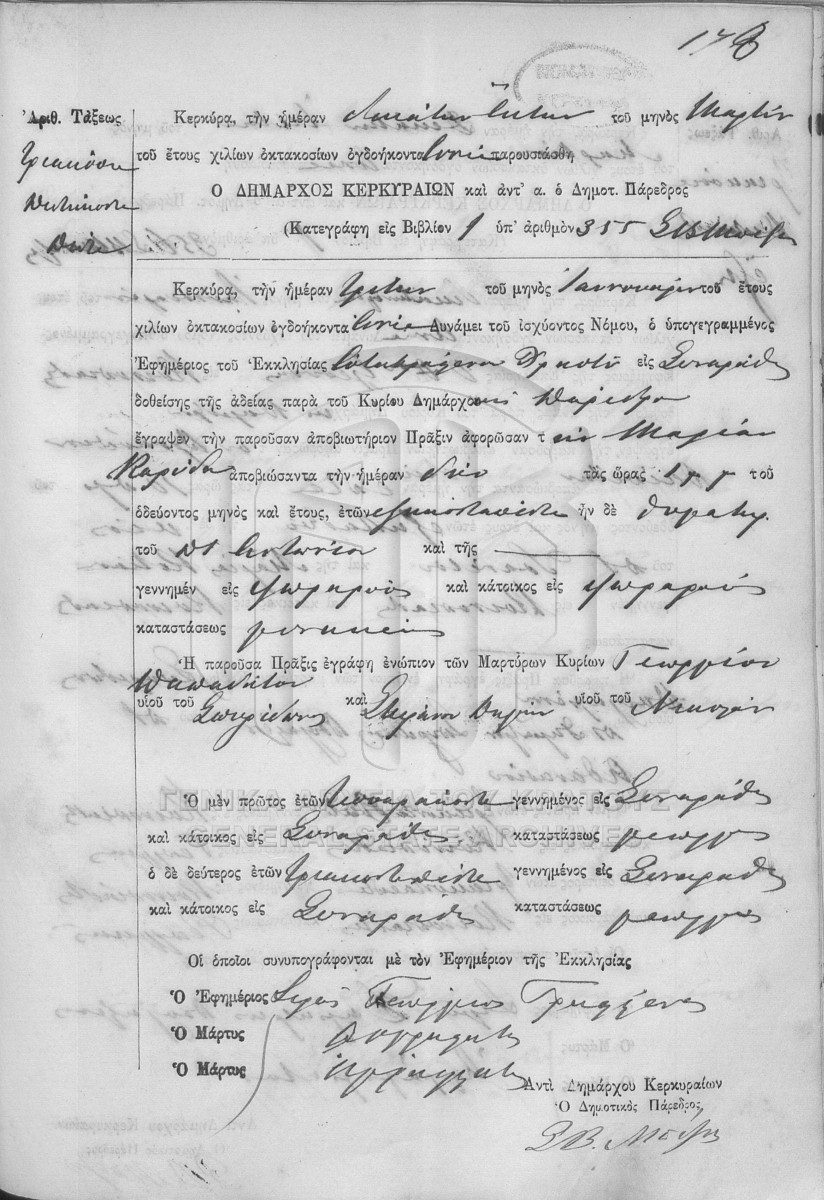 178
Ἀριθ. Τάξεως
Τριακόσια
Πεντήκοντα
Πέντε
Κερκύρα, τὴν ἡμέραν δεκάτην ἕκτην τοῦ μηνὸς Μαρτίου
τοῦ ἔτους χιλίων ὀκτακοσίων ὀγδοήκοντα ἐννέα παρουσιάσθη
Ὁ ΔΗΜΑΡΧΟΣ ΚΕΡΚΥΡΑΙΩΝ καὶ ἀντ' α. ὁ Δημοτ. Πάρεδρος
(Κατεγράφη εἰς Βιβλίον 1 ὑπ' ἀριθμὸν 355
Κερκύρα, τὴν ἡμέραν τρίτην τοῦ μηνὸς Ἰαννουαρίου τοῦ ἔτους
χιλίων ὀκτακοσίων ὀγδοήκοντα ἐννέα Δυνάμει τοῦ ἰσχύοντος Νόμου, ὁ ὑπογεγραμμένος
Ἐφημέριος τοῦ Ἐκκλησίας Ἐσταυρωμένου Χριστοῦ εἰς Συναράδες
δοθείσης τῆς ἀδείας παρὰ τοῦ Κυρίου Δημάρχου Παρέδρου
ἔγραψεν τὴν παροῦσαν ἀποβιωτήριον Πρᾶξιν ἀφορῶσαν τ ην Μαρίαν
ἀποβιώσαντα τὴν ἡμέραν δύο τὰς ὥρας τοῦ
ὁδεύοντος μηνὸς καὶ ἔτους, ἐτῶν ἑξήκοντα πέντε ἦν δὲ θυγάτηρ
τοῦ πτ Ἀντωνίου καὶ τῆς
γεννημέν εἰς Ψωραρούς καὶ κάτοικος εἰς Ψωραρούς
καταστάσεως
Ἡ παροῦσα Πρᾶξις ἐγράφη ἐνώπιον τῶν Μαρτύρων Κυρίων Γεωργίου
υἱοῦ τοῦ Σπυρίδωνος καὶ υἱοῦ τοῦ Νικολάου
Ὁ μὲν πρῶτος ἐτῶν τεσσαράκοντα γεννημένος εἰς Συναράδες
καὶ κάτοικος εἰς Συναράδες καταστάσεως γεωργὸς
ὁ δὲ δεύτερος ἐτῶν τριακονταπέντε γεννημένος εἰς Συναράδες
καὶ κάτοικος εἰς Συναράδες καταστάσεως γεωργὸς
Οἱ ὁποῖοι συνυπογράφονται μὲ τὸν Ἐφημέριον τῆς Ἐκκλησίας
Ὁ Ἐφημέριος Ἱερεὺς Γεώργιος
Ὁ Μάρτυς ἀγράμματος
Ὁ Μάρτυς ἀγράμματος
Ἀντὶ Δημάρχου Κερκυραίων
Ὁ Δημοτικὸς Πάρεδρος,
ΓΕΝΙΚΑ ΑΡΧΕΙΑ ΤΟΥ ΚΡΑΤΟΥΣ
GENERAL STATE ARCHIVES